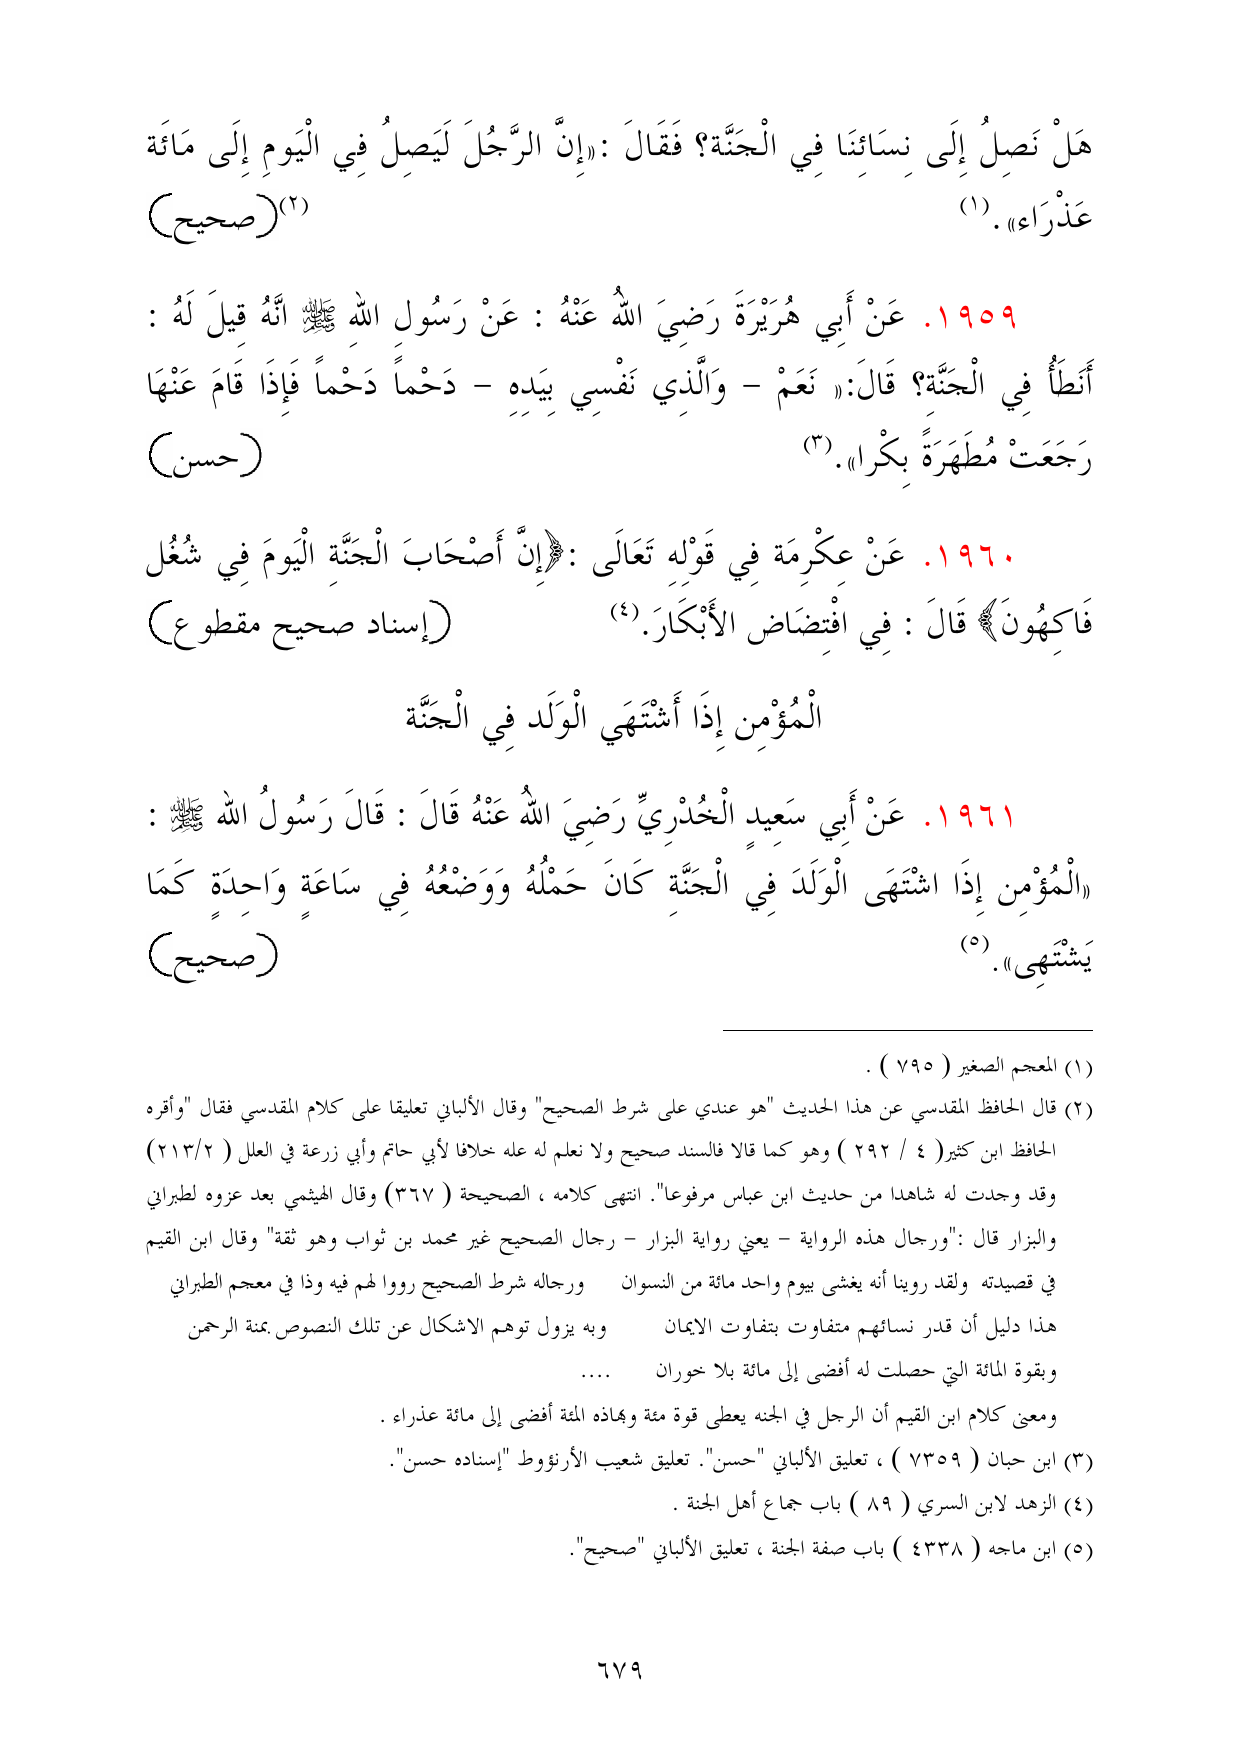 هَلْ نَصِلُ إِلَى نِسَائِنَا فِي الْجَنَّة؟ فَقَالَ :«إِنَّ الرَّجُلَ لَيَصِلُ فِي الْيَومِ إِلَى مَائَة
عَذْرَاء» .(١) (صحيح)(٢)
١٩٥٩. عَنْ أَبِي هُرَيْرَةَ رَضِيَ اللهُ عَنْهُ : عَنْ رَسُولِ اللهِ ﷺ انَّهُ قِيلَ لَهُ :
أَنَطَأُ فِي الْجَنَّةِ؟ قَالَ:« نَعَمْ – وَالَّذِي نَفْسِي بِيَدِهِ – دَحْماً دَحْماً فَإِذَا قَامَ عَنْهَا
رَجَعَتْ مُطَهَرَةً بِكْرا» .(٣) (حسن)
١٩٦٠. عَنْ عِكْرِمَة فِي قَوْلِهِ تَعَالَى :﴿إِنَّ أَصْحَابَ الْجَنَّةِ الْيَومَ فِي شُغُل
فَاكِهُونَ﴾ قَالَ : فِي افْتِضَاض الأَبْكَارَ.(٤) (إسناد صحيح مقطوع)
الْمُؤْمِن إِذَا أَشْتَهَي الْوَلَد فِي الْجَنَّة
١٩٦١. عَنْ أَبِي سَعِيدٍ الْخُدْرِيِّ رَضِيَ اللهُ عَنْهُ قَالَ : قَالَ رَسُولُ الله ﷺ :
«الْمُؤْمِن إِذَا اشْتَهَى الْوَلَدَ فِي الْجَنَّةِ كَانَ حَمْلُهُ وَوَضْعُهُ فِي سَاعَةٍ وَاحِدَةٍ كَمَا
يَشْتَهِى» .(٥) (صحيح)
(١) المعجم الصغير ( ٧٩٥ ) .
(٢) قال الحافظ المقدسي عن هذا الحديث "هو عندي على شرط الصحيح" وقال الألباني تعليقا على كلام المقدسي فقال "وأقره
الحافظ ابن كثير( ٤ / ٢٩٢ ) وهو كما قالا فالسند صحيح ولا نعلم له عله خلافا لأبي حاتم وأبي زرعة في العلل ( ٢١٣/٢)
وقد وجدت له شاهدا من حديث ابن عباس مرفوعا". انتهى كلامه ، الصحيحة ( ٣٦٧) وقال الهيثمي بعد عزوه لطبراني
والبزار قال :"ورجال هذه الرواية – يعني رواية البزار – رجال الصحيح غير محمد بن ثواب وهو ثقة" وقال ابن القيم
في قصيدته ولقد روينا أنه يغشى بيوم واحد مائة من النسوان ورجاله شرط الصحيح رووا لهم فيه وذا في معجم الطبراني
هذا دليل أن قدر نسائهم متفاوت بتفاوت الايمان وبه يزول توهم الاشكال عن تلك النصوص بمنة الرحمن
وبقوة المائة التي حصلت له أفضى إلى مائة بلا خوران ....
ومعنى كلام ابن القيم أن الرجل في الجنه يعطى قوة مئة وبهاذه المئة أفضى إلى مائة عذراء .
(٣) ابن حبان ( ٧٣٥٩ ) ، تعليق الألباني "حسن". تعليق شعيب الأرنؤوط "إسناده حسن".
(٤) الزهد لابن السري ( ٨٩ ) باب جماع أهل الجنة .
(٥) ابن ماجه ( ٤٣٣٨ ) باب صفة الجنة ، تعليق الألباني "صحيح".
٦٧٩